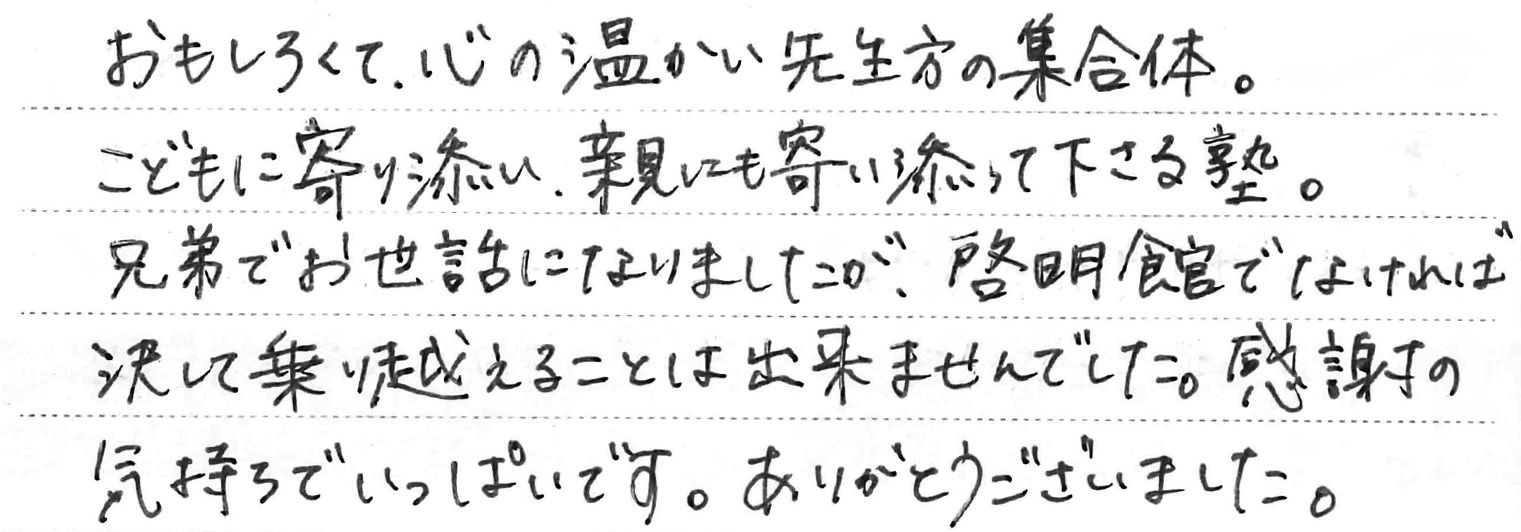 おもしろくて、心の温かい先生方の集合体。
こどもに寄り添い、親にも寄い添って下さる塾。
兄弟でお世話になりましたが、啓明館でなければ
決して乗り越えることは出来ませんでした。感謝の
気持ちでいっぱいです。ありがとうございました。